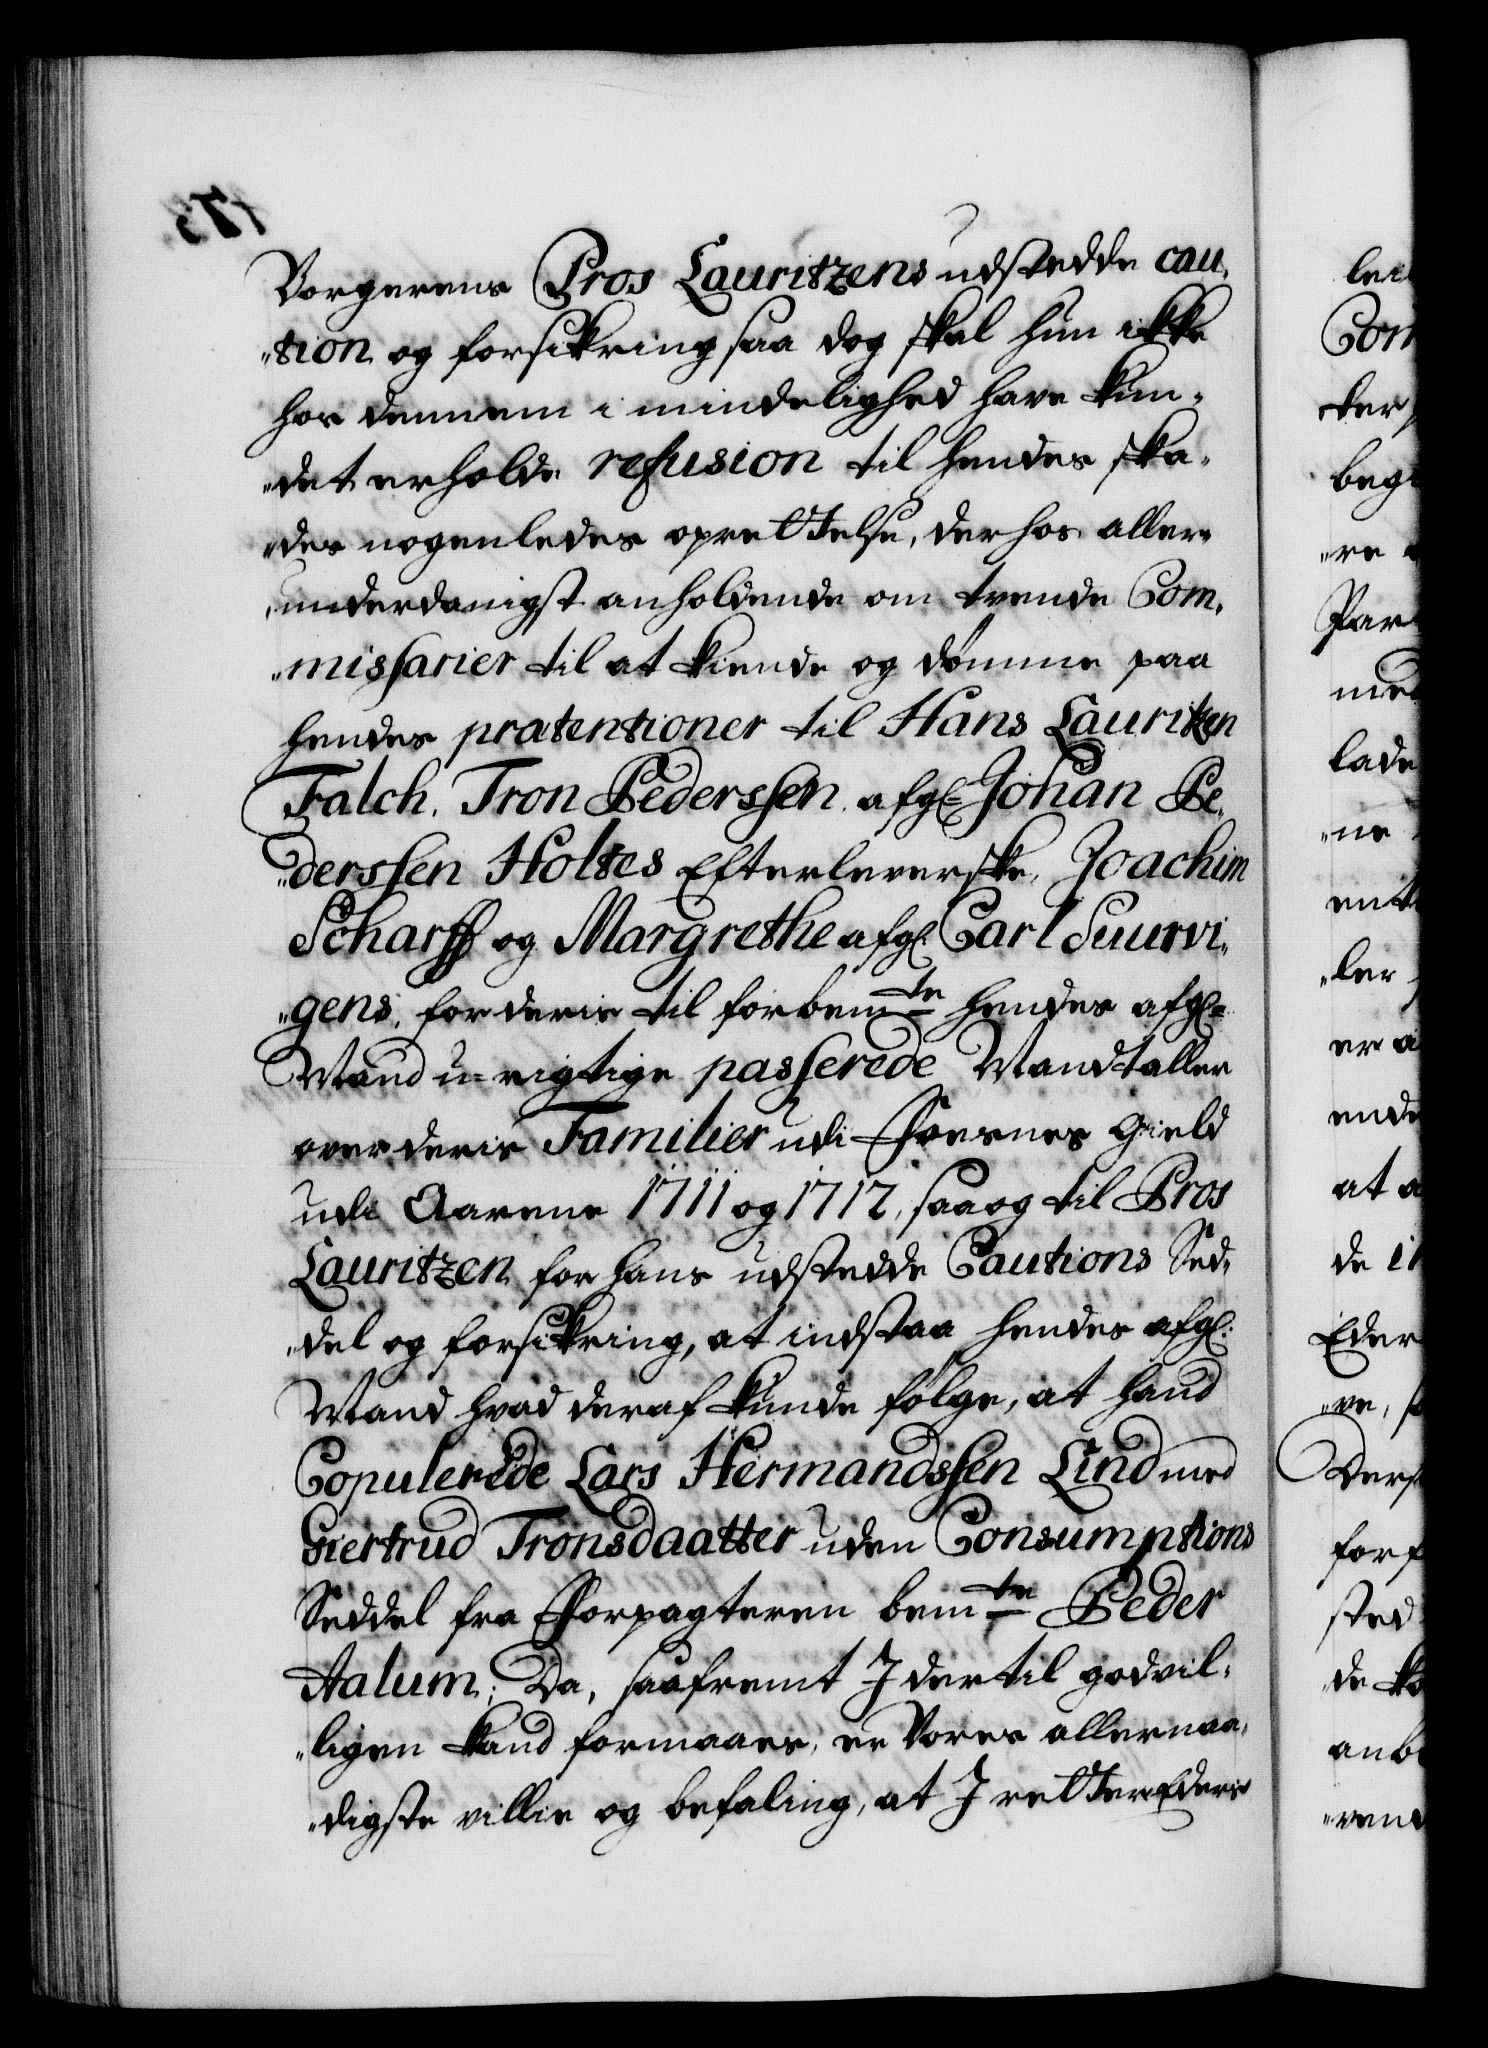 Borgerens Pros Lauritzens udstedde cau„
„tion og forsikring saa dog skal hun ikke
hos dennem i mindelighed have kun„
„det erholde refusion til hendes ska„
„des nogenledes oprettelse, derhos aller„
„underdanigst anholdende om trende Com„
„missarier til at kiende og dömme paa
hendes prætentioner til Hans Lauritzen
Falch, Tron Pederssen, afgl: Johan Pe„
„derssen Holtes Efterleverske, Joachim
Scharff og Margrethe afgl: Carl Suurvi„
„gens, for deris til forbemte hendes afgl:
Mand u-rigtige passerede Mandtaller
over deris Familier udi Foesnes Gield
udi Aarene 1711 og 1712, saa og til Pros
Lauritzen for hans udstedde Cautions Sed„
„del og forsikring, at indstaa hendes afgl:
Mand hvad deraf kunde fölge, at hand
Copulerede Lars Hermandssen Lind med
Giertrud Tronsdaatter uden Consumptions
Seddel fra Forpagteren bemte Peder
Aalum; Da, saafremt I dertil godvil„
„ligen kand formaaes, er Vores allernaa„
„digste villie og befaling, at I retter Eders